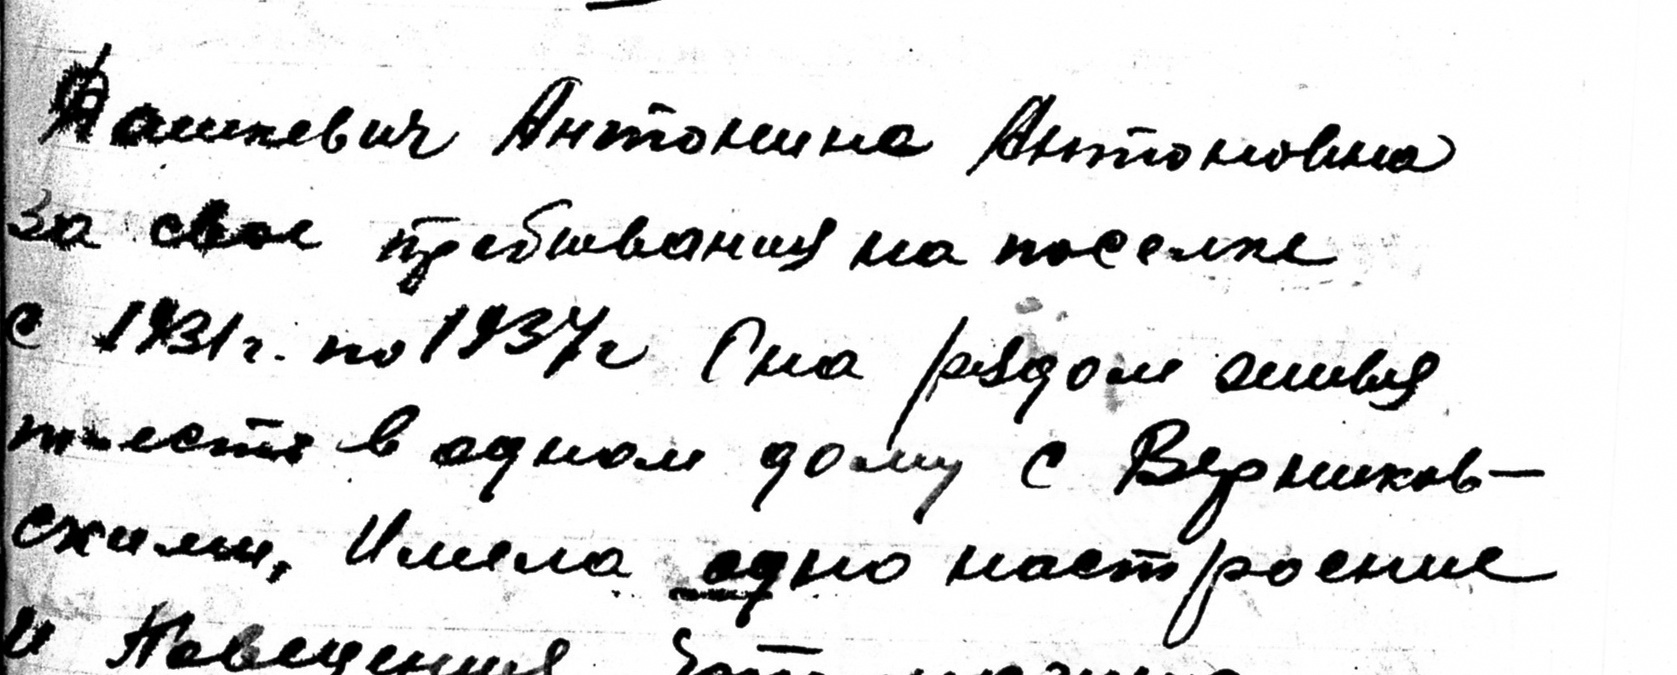 Пашкевич Антонина Антоновна
За свое пребывания на поселке
с 1931г. по 1937г Она рядом живя
вместе в одном дому с Верников-
скими, Имела одно настроение
и